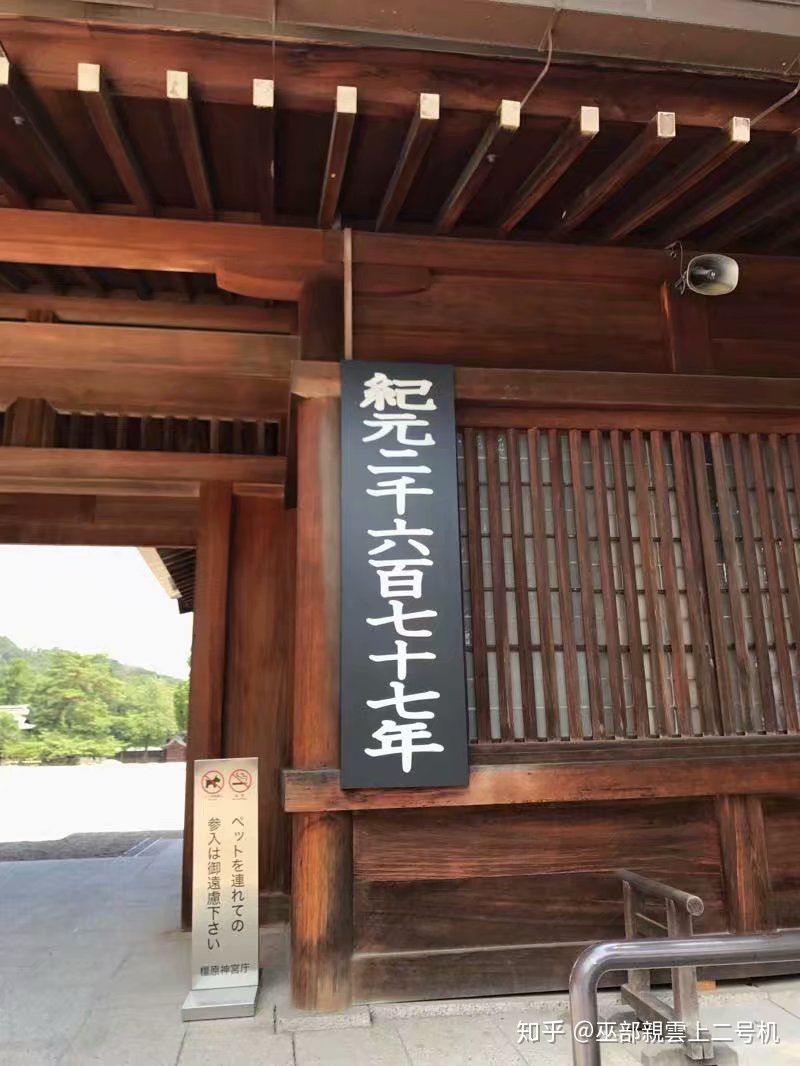 紀元二千六百七十七年
ペットを連れての
参入は御遠慮下さい
橿原神宮庁
知乎 @巫部親雲上二号机